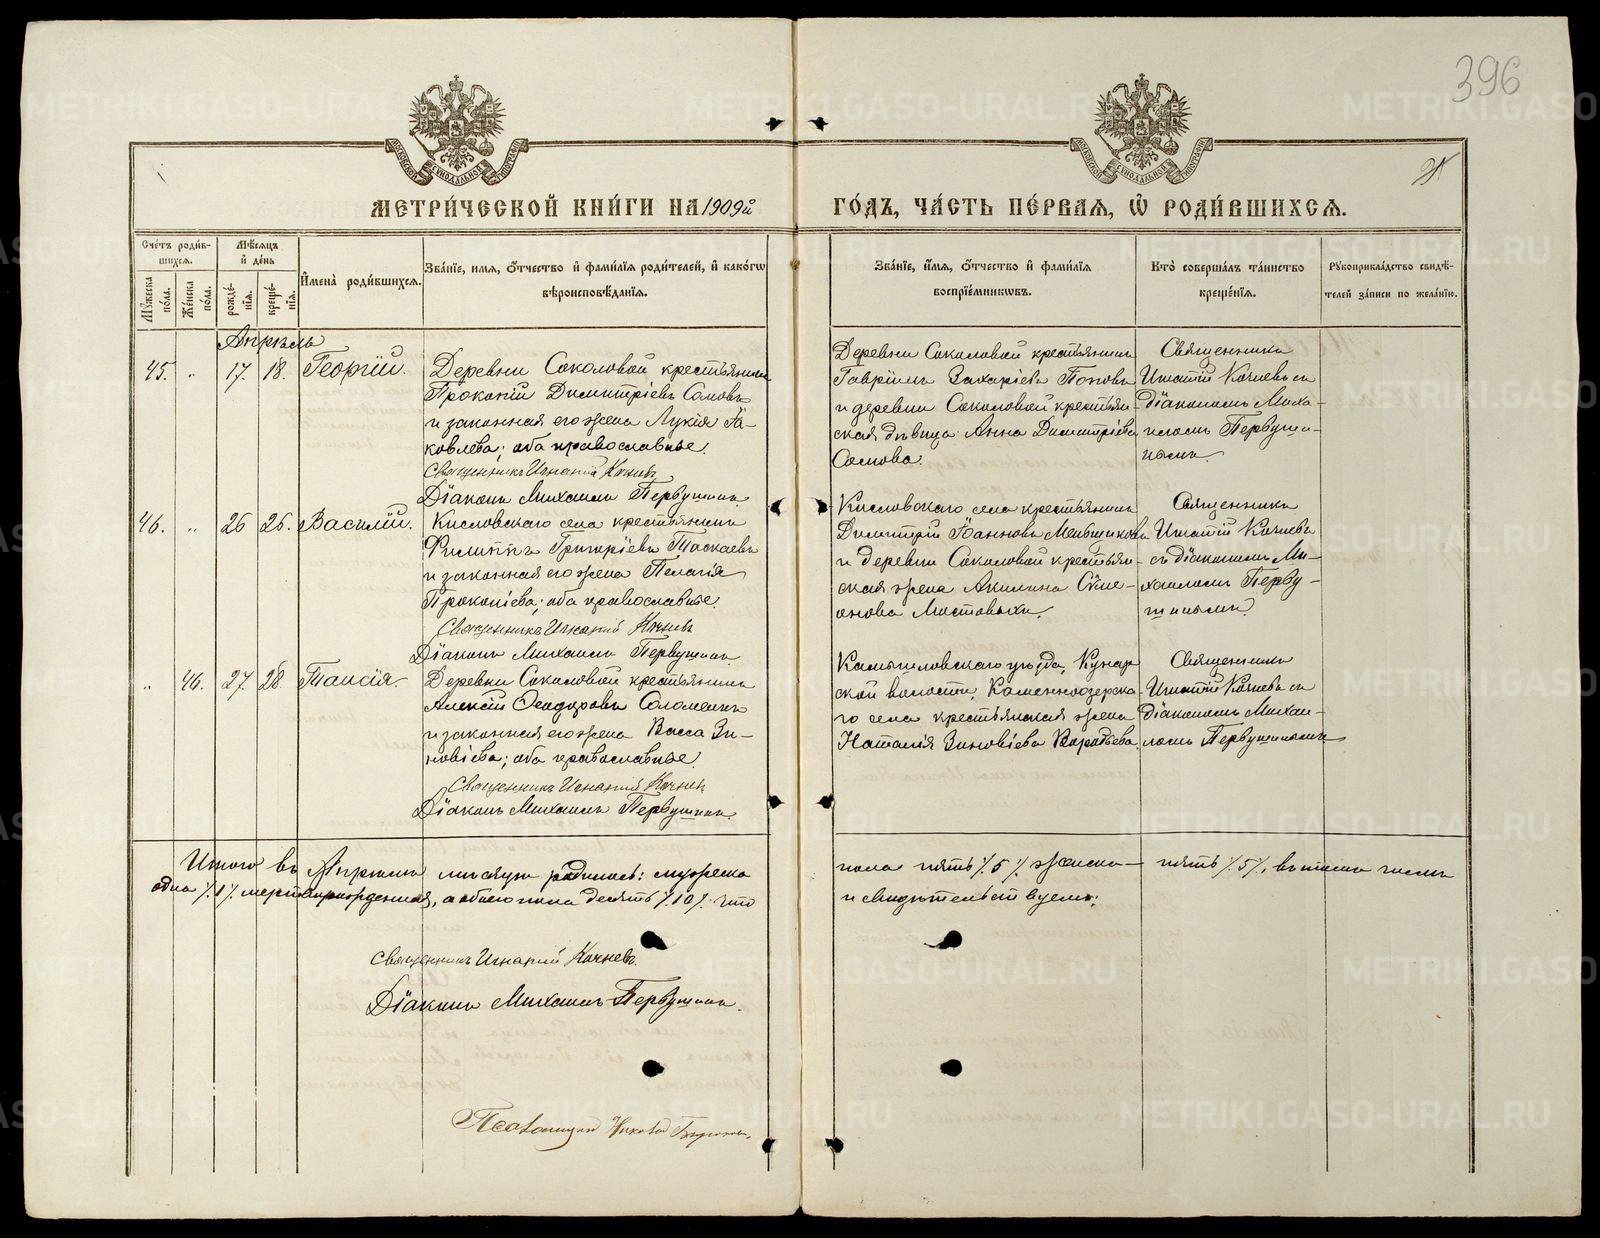 396
МЕТРИ́ЧЕСКОЙ КНИ́ГИ НА 1909й ГО́ДЪ, ЧА́СТЬ ПЕ́РВАЯ, Ѡ РОДИ́ВШИХСЯ.
Сче́тъ роди́в-
шихся.
Мꙋжеска по́ла.
Же́нска по́ла.
Мѣ́сяцъ и де́нь
рожде́нїя.
креще́нїя.
Имена̀ роди́вшихся.
Зва́нїе, имя, ѻтчество и фамилїя роди́телей, и како́гѡ
вѣроисповѣ́данїя.
Зва́нїе, и́мя, ѻтчество и фами́лїя
воспрїе́мниковъ.
Кто̀ соверша́лъ та́инство
креще́нїя.
Рꙋкоприкла́дство свидѣ́-
телей за́писи по жела́нїю.
Апрѣль
45. „ 17. 18. Георгій.
Деревни Соколовой крестьянинъ
Прокопій Димитріевъ Сомовъ
и законная его жена Лукія Іа-
ковлева; оба православные.
Священникъ Игнатій Кочневъ
Діаконъ Михаилъ Первушинъ.
Деревни Соколовой крестьянинъ
Гавріилъ Захаріевъ Поповъ
и деревни Соколовой крестьян-
ская дѣвица Анна Димитріева
Сомова.
Священникъ
Игнатій Кочневъ съ
діакономъ Миха-
иломъ Первуши-
нымъ.
46. „ 26 26. Василій.
Кисловскаго села крестьянинъ
Филиппъ Григоріевъ Таскаевъ
и законная его жена Пелагія
Прокопіева; оба православные.
Священникъ Игнатій Кочневъ
Діаконъ Михаилъ Первушинъ.
Кисловскаго села крестьянинъ
Димитрій Іоанновъ Меньшиковъ
и деревни Соколовой крестьян-
ская жена Акилина Сѵме-
онова Мостовыхъ.
Священникъ
Игнатій Кочневъ
съ діакономъ Ми-
хаиломъ Перву-
шинымъ.
„ 46. 27. 28. Таисія.
Деревни Соколовой крестьянинъ
Алексій Ѳеодоровъ Соломеинъ
и законная его жена Васса Зи-
новіева; оба православные.
Священникъ Игнатій Кочневъ
Діаконъ Михаилъ Первушинъ.
Камышловскаго уѣзда, Кунар-
ской волости, Каменноозерска-
го села крестьянская жена
Наталія Зиновіева Воробьева.
Священникъ
Игнатій Кочневъ съ
діакономъ Михаи-
ломъ Первушинымъ
Итого въ Апрѣлѣ мѣсяцѣ родилось: мужеска пола пять /.5/. женска – пять /.5/., въ томъ числѣ
одна /.1/. мертворожденная, а обоего пола десять /.10/. что и свидѣтельствуемъ:
Священникъ Игнатій Кочневъ.
Діаконъ Михаилъ Первушинъ.
Псаломщикъ
METRIKI.GASO-URAL.RU